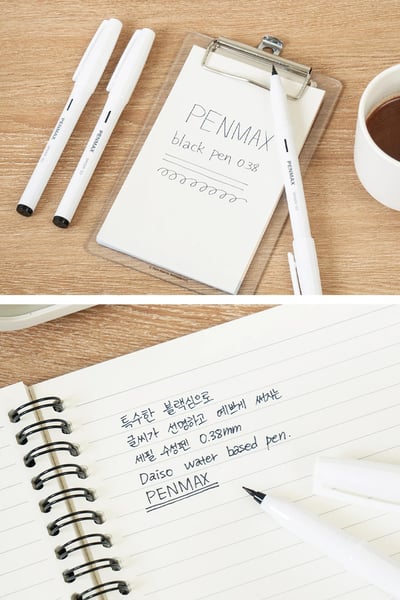 PENMAX
PENMAX
PENMAX
black pen 0.38
PENMAX
특수한 블랙심으로
글씨가 선명하고 예쁘게 써지는
세필 수성펜 0.38mm
Daiso water based pen.
PENMAX